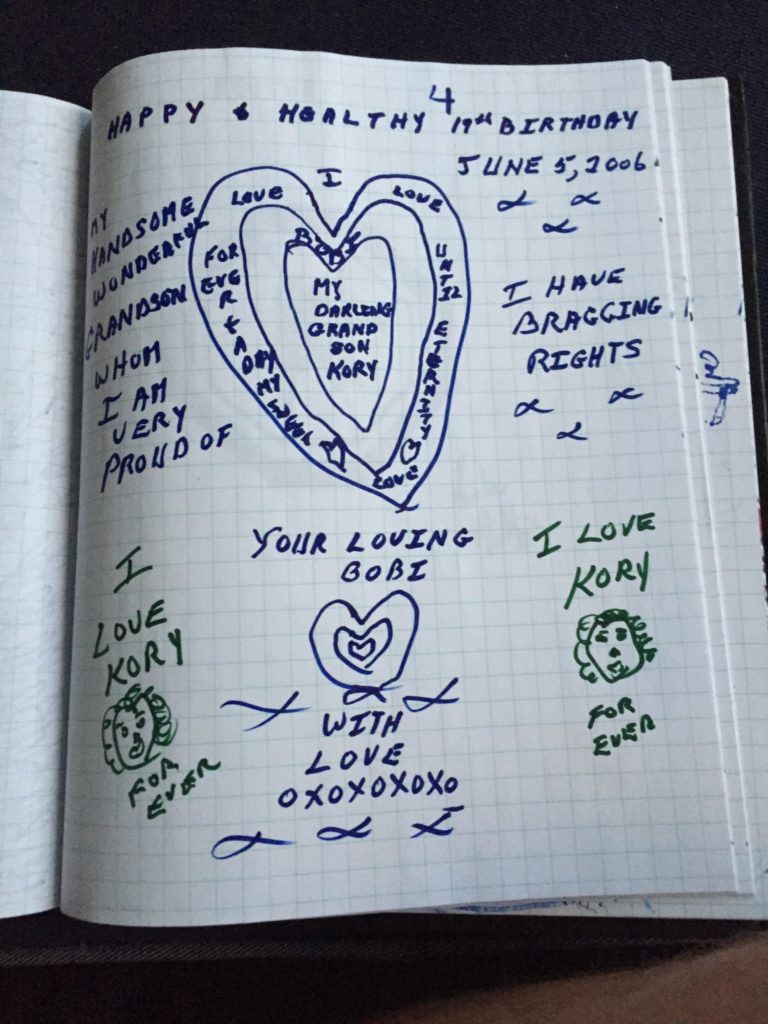 4
HAPPY & HEALTHY 19th BIRTHDAY
JUNE 5, 2006
MY
HANDSOME
WONDERFUL
GRANDSON
WHOM
I AM
VERY
PROUD OF
I
LOVE
LOVE
FOR
EVE
R &
A
DAY
MY
UNTIL ETERNITY
LOVE
BOBI
MY
DARLING
GRAND
SON
KORY
I HAVE
BRAGGING
RIGHTS
YOUR LOVING
BOBI
I
LOVE
KORY
FOR
EVER
I LOVE
KORY
FOR
EVER
WITH
LOVE
OXOXOXOXO